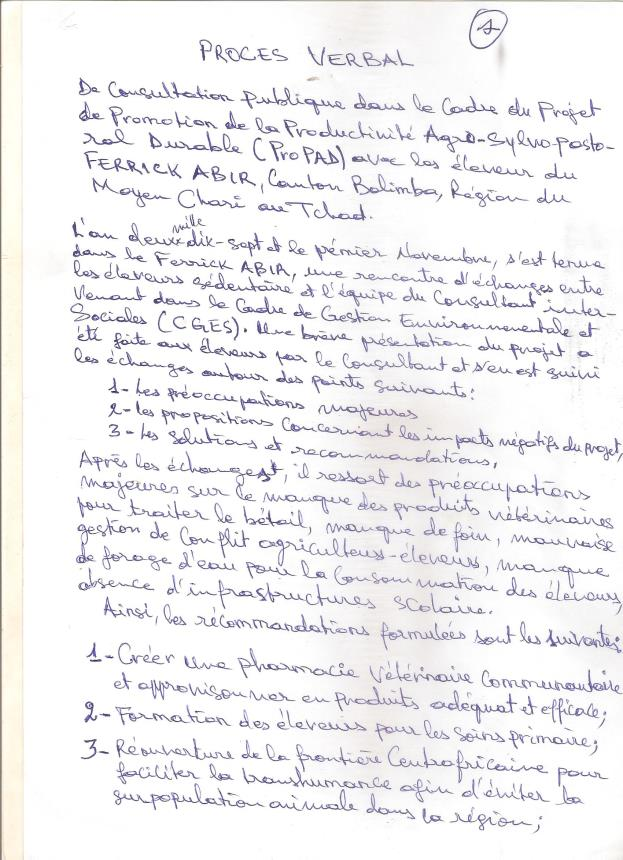 1
PROCES VERBAL
De Consultation publique dans le Cadre du Projet
de Promotion de la Productivité Agro-Sylvo-pasto-
ral Durable (ProPAD) avec les éleveur du
FERRICK ABIR, Canton Balimba, Région du
Moyen Chari au Tchad.
L'an deux mille dix-sept et le prémier Novembre, s'est tenue
dans le Ferrick ABIA, une rencontre d'échanges entre
les éleveurs sédentaire et l'équipe du Consultant inter-
venant dans le Cadre de Gestion Environnementale et
Sociales (CGES). Une brève présentation du projet a
été faite aux éleveurs par le Consultant et s'en est suivi
les échanges autour des points suivants:
1- Les préoccupations majeures
2- les propositions concernant les impacts négatifs du projet,
3- Les solutions et recommandations.
Après les échanges, il ressort des préoccupations
majeures sur le manque des produits vétérinaires
pour traiter le bétail, manque de foin, mauvaise
gestion de conflit agriculteurs-éleveurs, manque
de forage d'eau pour la consommation des éleveurs,
absence d'infrastructures scolaire.
Ainsi, les récommandations formulées sont les suivantes:
1- Créer une pharmacie vétérinaire Communautaire
et approvisonner en produits adéquat et efficace;
2- Formation des éleveurs pour les soins primaire;
3- Réouverture de la frontière Centrafricaine pour
faciliter la transhumance afin d'éviter la
surpopulation animale dans la région;